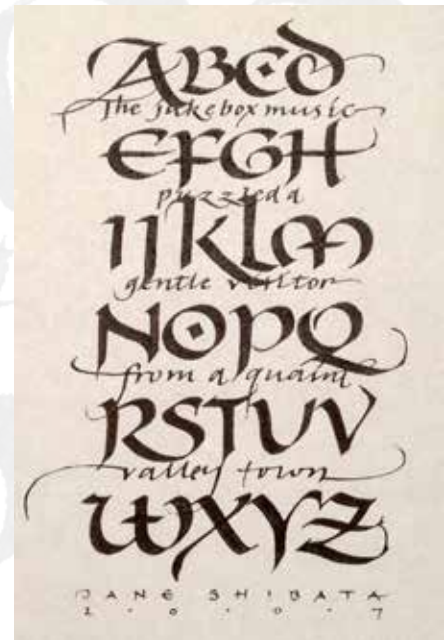 ABCD
The jukebox music
EFGH
puzzled a
IJKLM
gentle visitor
NOPQ
from a quaint
RSTUV
valley town
WXYZ
JANE SHIBATA
2 · 0 · 0 · 7